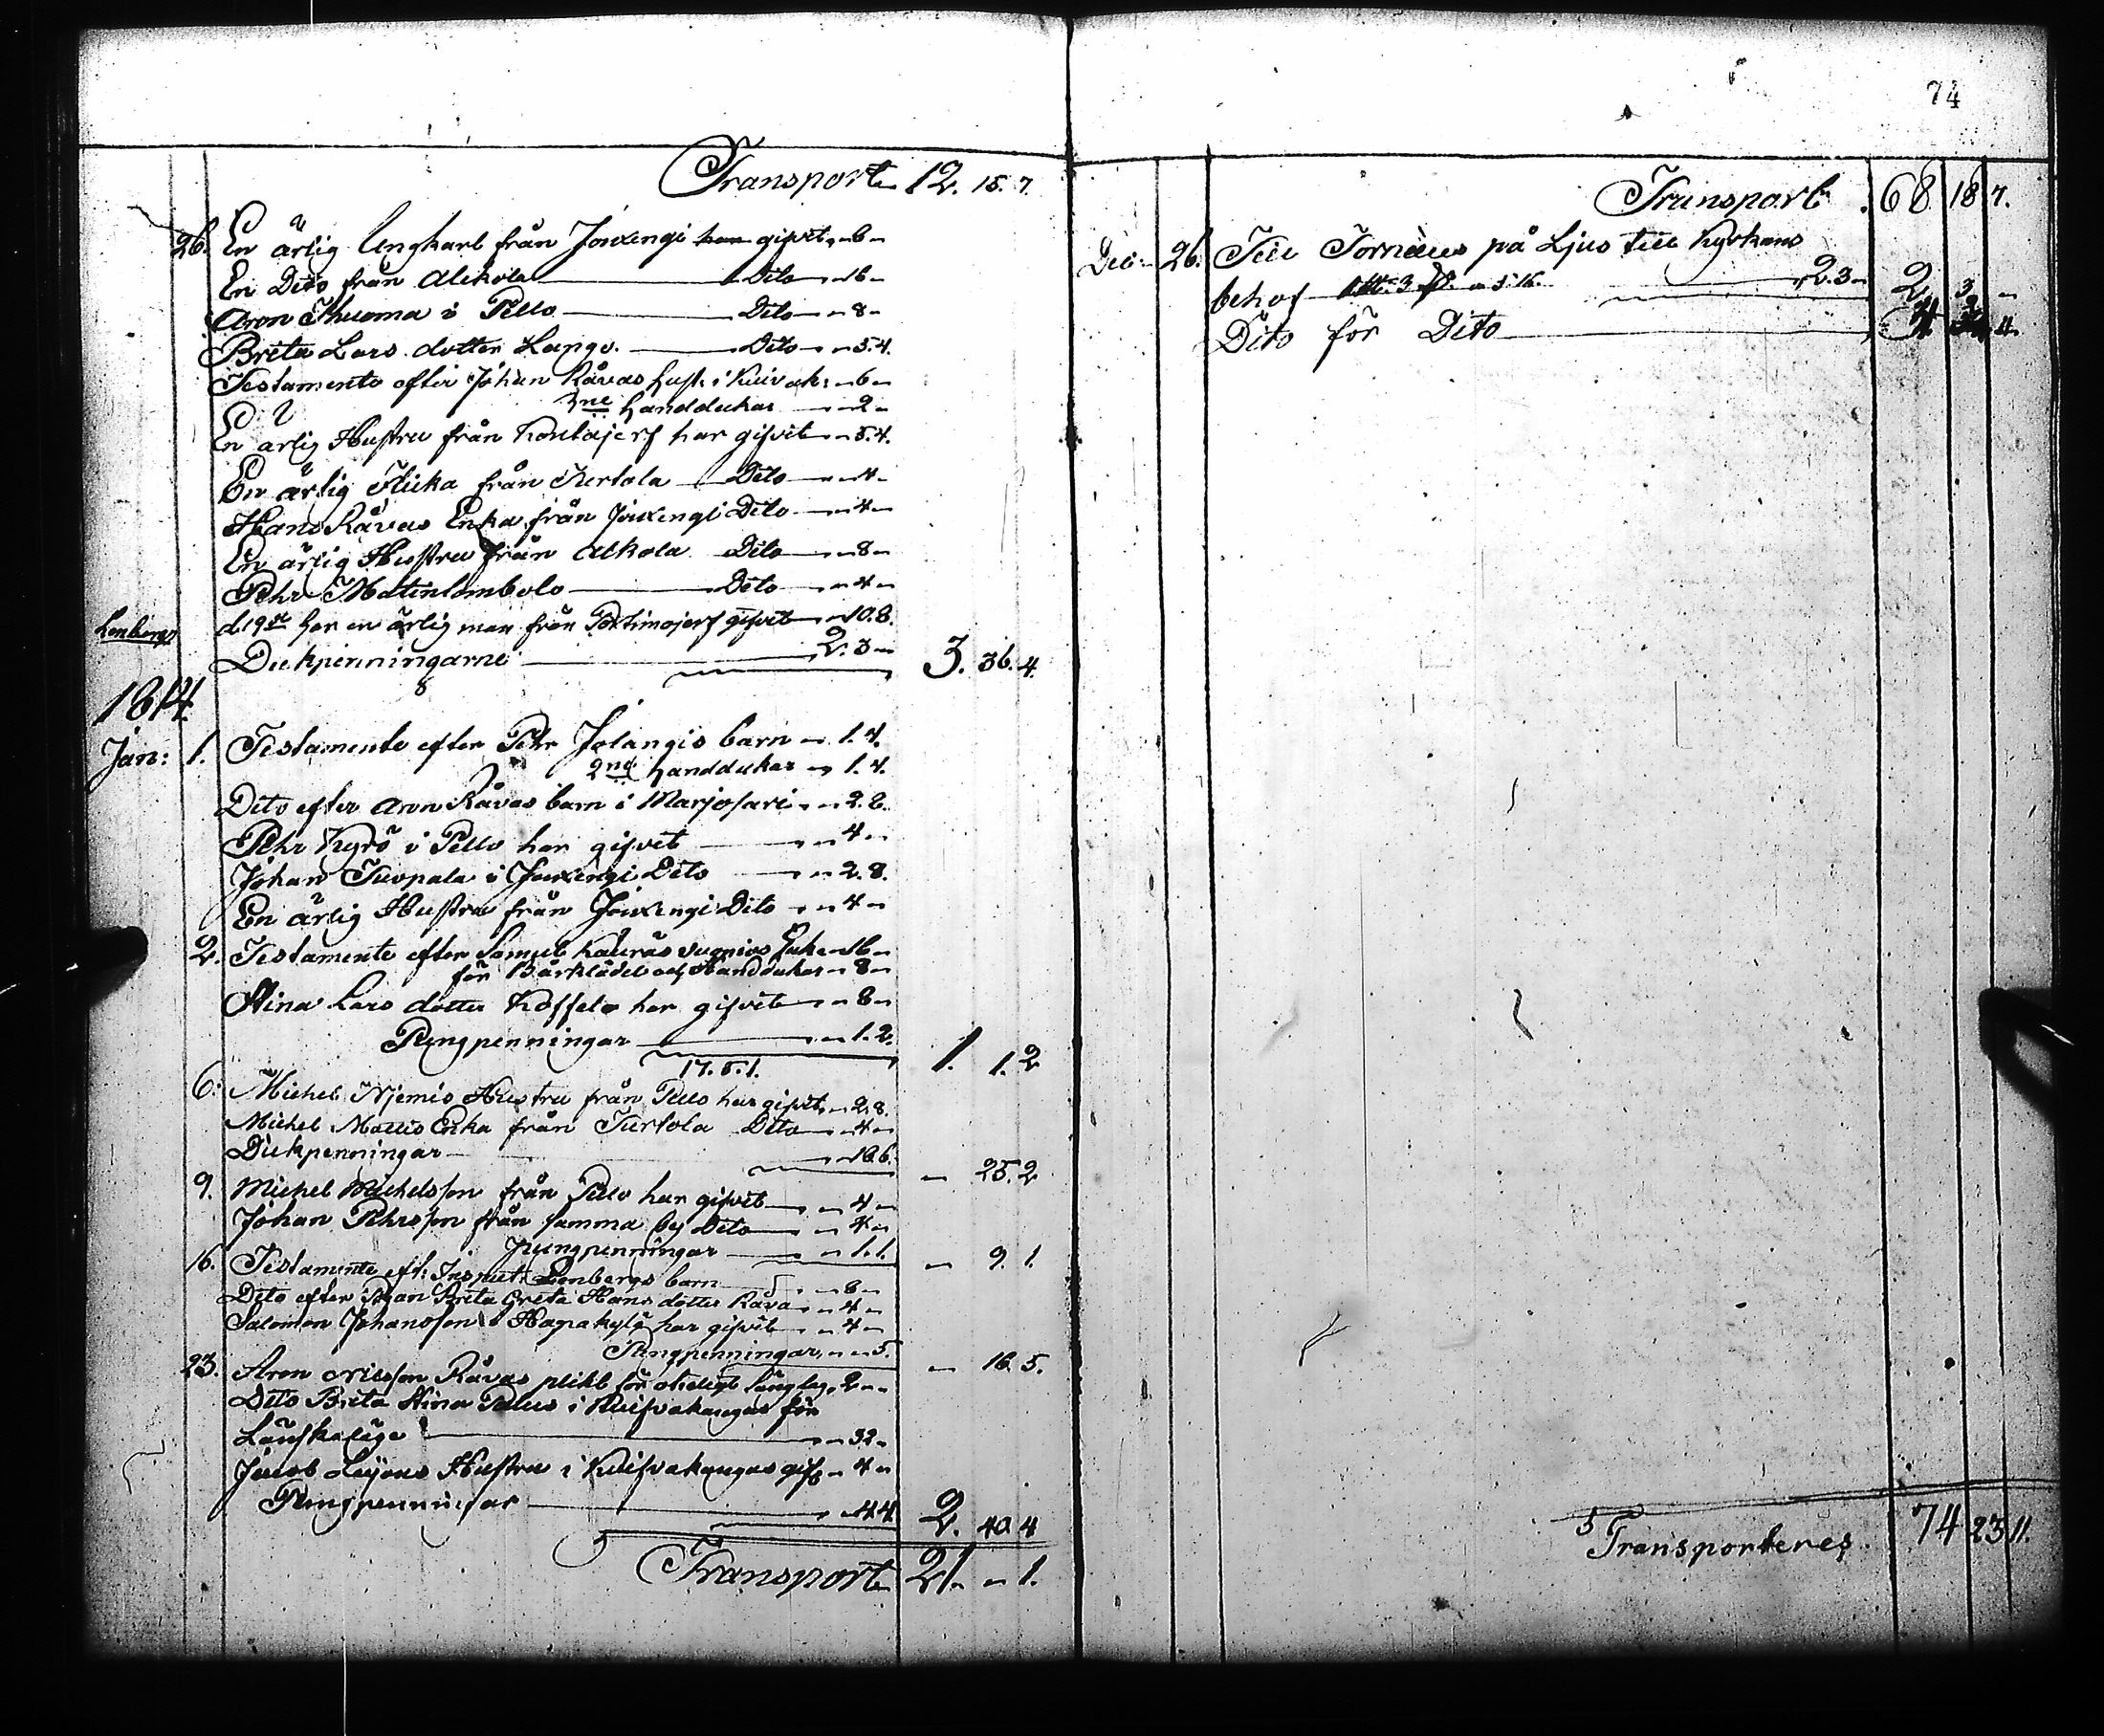 Transport 12. 15. 7.
26. En ärlig Ungkarl från Jouxengi har gifvit - 6 -
En Dito från Alkola Dito - 16 -
Aron Thuoma i Pello Dito - 8 -
Brita Lars dotter Lango. Dito - 5.4.
Testamente efter Johan Råvas hust: i Kuivak: - 6 -
2ne handdukar - 2 -
En ärlig Hustru från Kontajerf har gifvit - 5.4.
En ärlig Flicka från Turtola Dito - 4 -
Hans Råvas Enka från Jouxengi Dito - 4 -
En ärlig Hustru från Alkola Dito - 8 -
Pehr Matinlombolo Dito - 4 -
d 19de har en ärlig man från Portimojerf gifvit - 10.8.
Lonbergs
Dukpenningarne 2. 3 - 3. 36. 4.
1814
Jan: 1. Testamente efter Pehr Jolangis barn - 1.4.
2ne handdukar - 1.4.
Dito efter Aron Råvas barn i Marjosari - 2.8.
Pehr Kyrö i Pello har gifvit - 4 -
Johan Tuopala i Jouxengi Dito - 2.8.
En ärlig Hustru från Jouxengi Dito - 4 -
2. Testamente efter Samuel - 16 -
för Bårklädet och Handdukar - 8 -
Stina Lars dotter har gifvit - 8 -
Pungpenningar - 1.2. 1. 1. 2
17.5.1.
6: Michel Njemis Hustru från Pello har gifvit - 2.8.
Michel Mattis Enka från Turtola Dito - 4 -
Dukpenningar - 18.6. - 25. 2
9. Michel Michelsson från Pello har gifvit - 4 -
Johan Pehrsson från samma by Dito - 4 -
Pungpenningar - 1.1. - 9. 1.
16. Testamente eft: Inspect: Lonbergs barn - 8 -
Dito efter Pigan Brita Greta Hans dotter Råva - 4 -
Salomon Johansson i Hapakylä har gifvit - 4 -
Pungpenningar - 5. - 16. 5.
23. Aron Nilsson Råvas plikt för otidigt sänglag 2 - -
Dito Brita Stina Palus i Kuifvakangas för
Lönskaläge - 32 -
Jacob Leijons Hustru i Kuifvakangas gifv - 4 -
Pungpenningar - 4.4. 2. 40 4
Transport 21. - 1.
74
Transport 68 18 7.
Dec: 26. Till Tornæus på Ljus till Kyrkans
behof 2.3 - 2 3 -
Dito för Dito 4.
Transporteres 74 23 11.